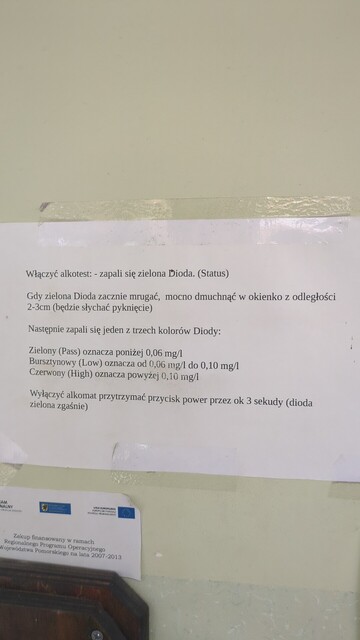 Włączyć alkotest: - zapali się zielona Dioda. (Status)
Gdy zielona Dioda zacznie mrugać, mocno dmuchnąć w okienko z odległości
2-3cm (będzie słychać pyknięcie)
Następnie zapali się jeden z trzech kolorów Diody:
Zielony (Pass) oznacza poniżej 0,06 mg/l
Bursztynowy (Low) oznacza od 0,06 mg/l do 0,10 mg/l
Czerwony (High) oznacza powyżej 0,10 mg/l
Wyłączyć alkomat przytrzymać przycisk power przez ok 3 sekudy (dioda
zielona zgaśnie)
Zakup finansowany w ramach
Regionalnego Programu Operacyjnego
Województwa Pomorskiego na lata 2007-2013